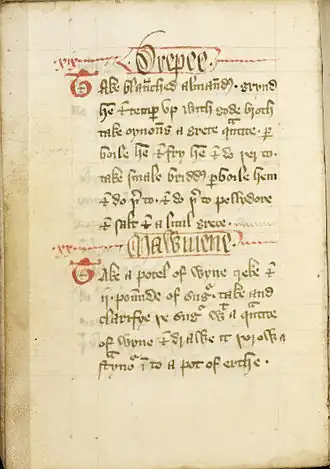 xix. Drepee.
Take blaun̄ched almand̉. grynd
hē & temp̱ up with gode broth
take oynoūs a grete q̄ntite. p̱
boile hē & fry hē & do þer to.
take smale bridd̉ p̱boile hem
& do þ̉to. & do þ̉ to pellydore
& salt & a litul grece.
xx. Mawmene.
Take a potel of wyne greke &
ii. pounde of sug̉. take and
clarifye þe sug̉ wᵗ a q̄ntite
of wyne & drawe it þorow a
stynỏ ī to a pot of erthe.